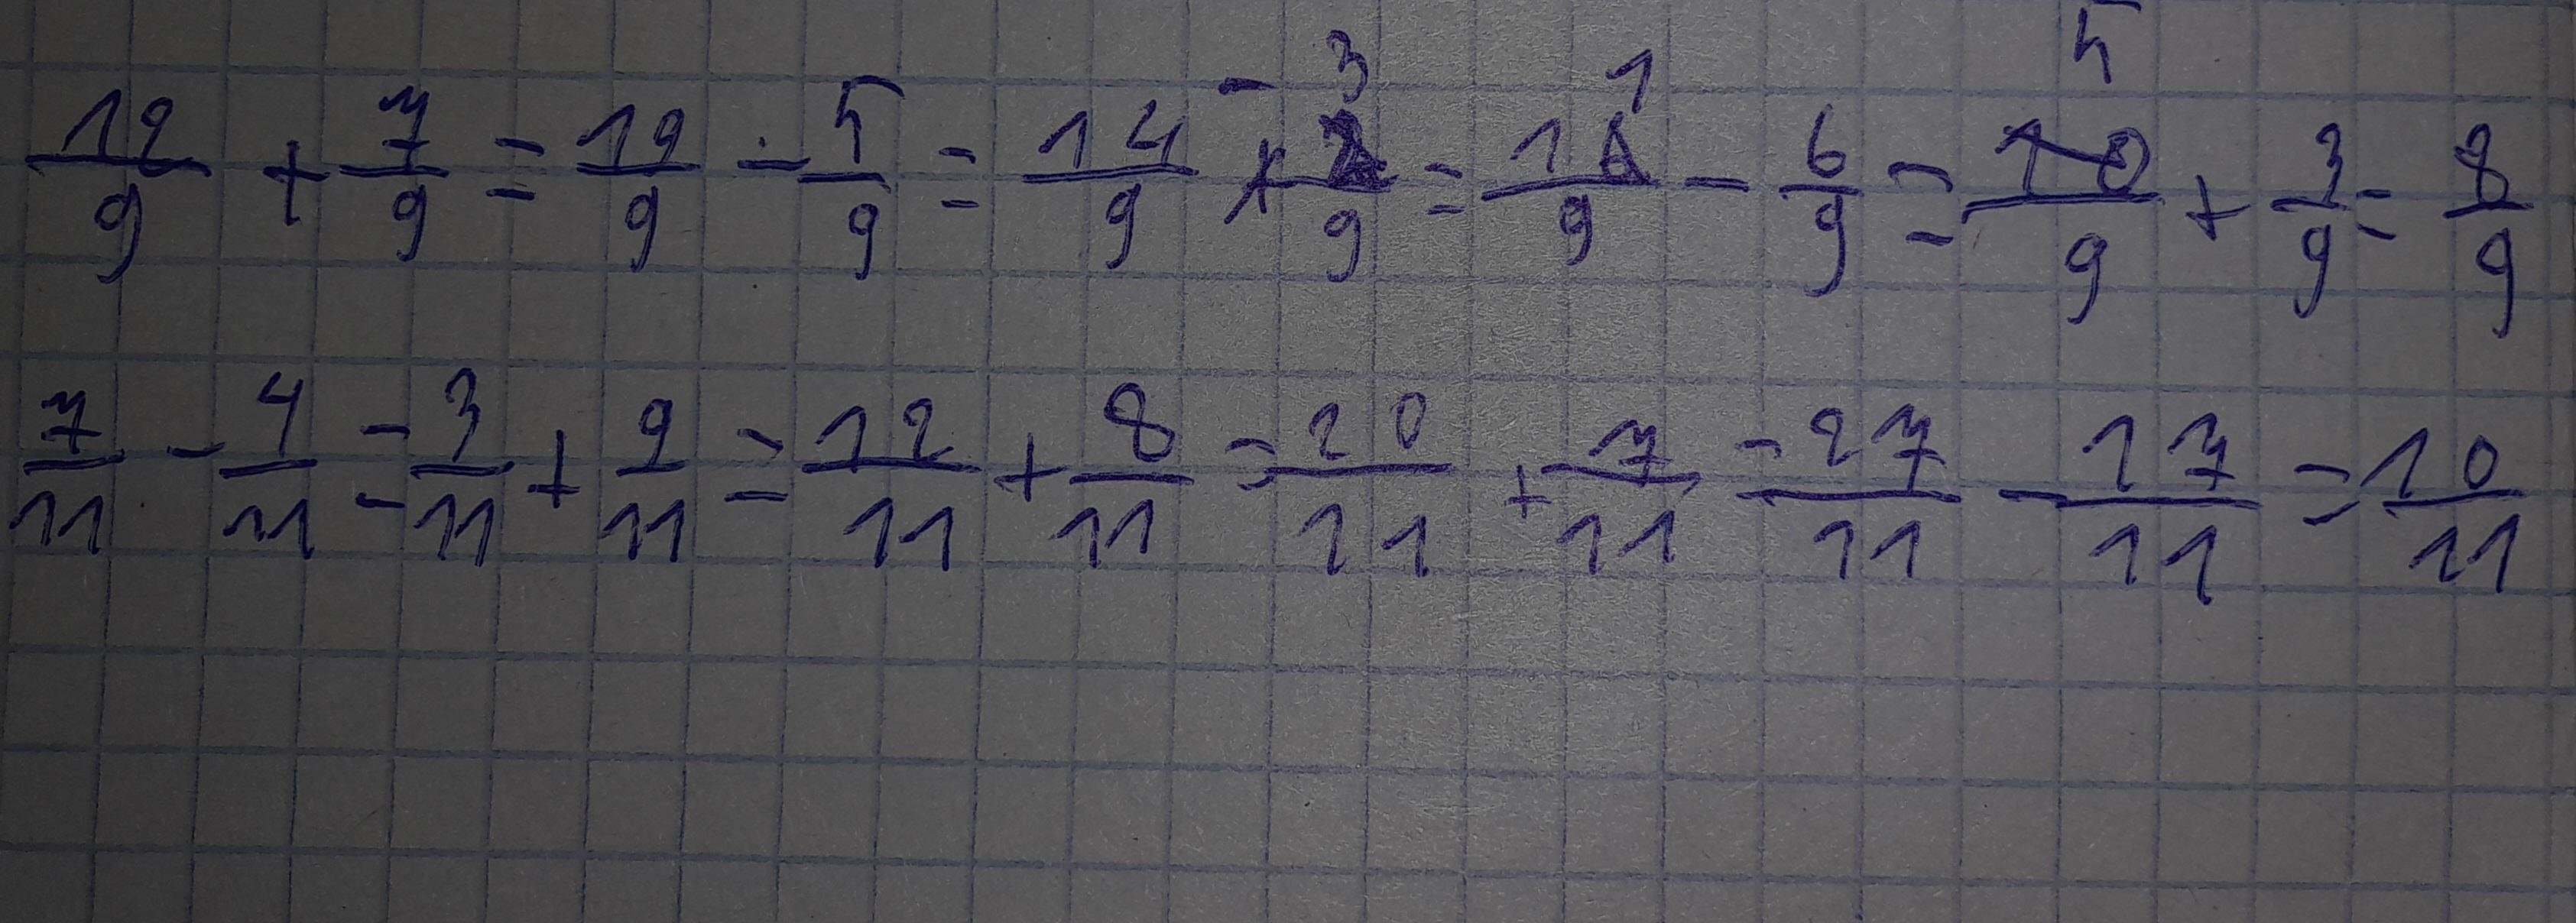 12/9 + 7/9 = 19/9 - 5/9 = 14/9 - 3/9 = 11/9 - 6/9 = 5/9 + 3/9 = 8/9
7/11 - 4/11 = 3/11 + 9/11 = 12/11 + 8/11 = 20/11 + 7/11 = 27/11 - 17/11 = 10/11